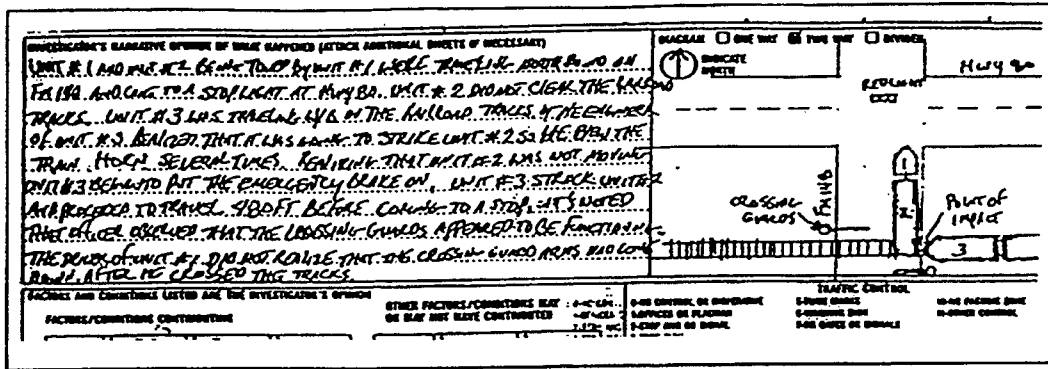 INVESTIGATOR'S NARRATIVE OPINION OF WHAT HAPPENED (ATTACH ADDITIONAL SHEETS IF NECESSARY)
UNIT #1 AND UNIT #2 BEING TOWED BY UNIT #1 WERE TRAVELING NORTHBOUND ON
FM 148 AND CAME TO A STOPLIGHT AT HWY 80. UNIT #2 DID NOT CLEAR THE RAILROAD
TRACKS. UNIT #3 WAS TRAVELING W/B ON THE RAILROAD TRACKS. THE ENGINEER
OF UNIT #3 REALIZED THAT IT WAS GOING TO STRIKE UNIT #2 SO HE BLEW THE
TRAIN HORN SEVERAL TIMES. REALIZING THAT UNIT #2 WAS NOT MOVING
UNIT #3 BEGAN TO PUT THE EMERGENCY BRAKE ON. UNIT #3 STRUCK UNIT #2
AND PROCEEDED TO TRAVEL 480 FT BEFORE COMING TO A STOP. IT'S NOTED
THAT OFFICER OBSERVED THAT THE CROSSING GUARDS APPEARED TO BE FUNCTIONING.
THE DRIVER OF UNIT #1 DID NOT REALIZE THAT THE CROSSING GUARD ARMS HAD COME
DOWN AFTER HE CROSSED THE TRACKS.
DIAGRAM ONE WAY TWO WAY DIVIDED
INDICATE
NORTH
HWY 80
RED LIGHT
1
2
3
CROSSING
GUARDS
FM 148
POINT OF
IMPACT
FACTORS AND CONDITIONS LISTED ARE THE INVESTIGATOR'S OPINION
FACTORS/CONDITIONS CONTRIBUTING
OTHER FACTORS/CONDITIONS MAY
OR MAY NOT HAVE CONTRIBUTED
TRAFFIC CONTROL
0-NO CONTROL OR INOPERATIVE
1-OFFICER OR FLAGMAN
2-STOP AND GO SIGNAL
6-WARNING SIGN
7-RR GATES OR SIGNALS
10-NO PASSING ZONE
11-OTHER CONTROL